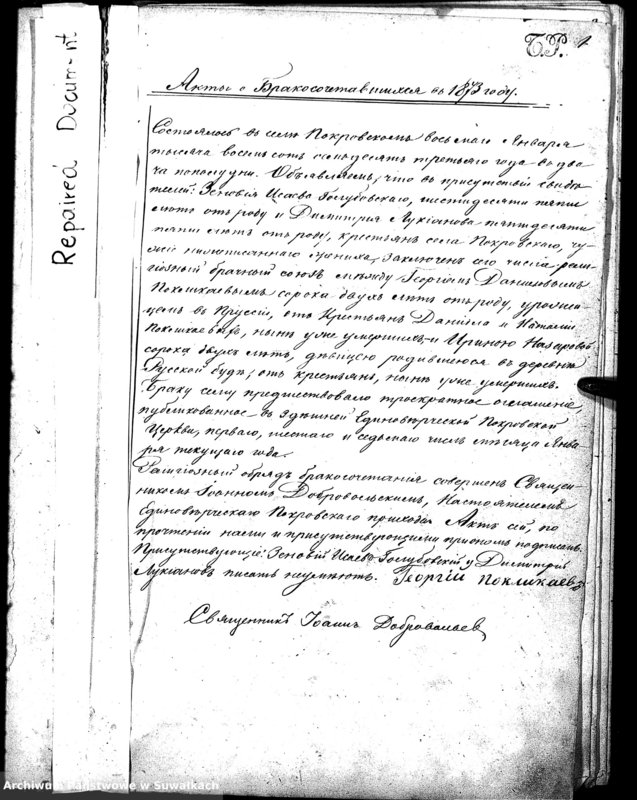 Б.Р. 1
Акты о Бракосочетавшихся въ 1873 году.
Состоялось въ селѣ Покровскомъ восьмаго Января
тысяча восемь сотъ семьдесятъ третьяго года въ два
ча пополудни. Объявляемъ, что въ присутствіи свидѣ-
телей: Зеновія Исаева Голубовскаго, шестидесяти пяти
лѣтъ отъ роду и Димитрія Лукіанова пятидесяти
пяти лѣтъ отъ роду, крестьянъ села Покровскаго,
заключенъ сего числа рели-
гіозный брачный союзъ между Георгіемъ Даниловымъ
Покликаевымъ сорока двухъ лѣтъ отъ роду, урожен-
цемъ въ Пруссіи, отъ крестьянъ Даніила и Наталіи
Покликаевыхъ, нынѣ уже умершихъ и Ириною Назаровой
сорока двухъ лѣтъ, дѣвицею родившеюся въ деревнѣ
Русской Будѣ, отъ крестьянъ, нынѣ уже умершихъ.
Браку сему предшествовало троекратное оглашеніе,
публикованное въ здѣшней Единовѣрческой Покровской
Церкви, перваго, шестаго и седьмаго числъ мѣсяца Янва-
ря текущаго года.
Религіозный обрядъ бракосочетанія совершенъ Священ-
никомъ Іоанномъ Добровольскимъ, Настоятелемъ
Единовѣрческаго Покровскаго прихода. Актъ сей, по
прочтеніи нами и присутствующими при ономъ подписанъ.
Присутствующіе: Зеновій Исаевъ Голубовскій и Димитрій
Лукіановъ писать неумѣютъ. Георгій Покликаевъ
Священникъ Іоаннъ
Repaired Docum-nt
Archiwum Państwowe w Suwałkach